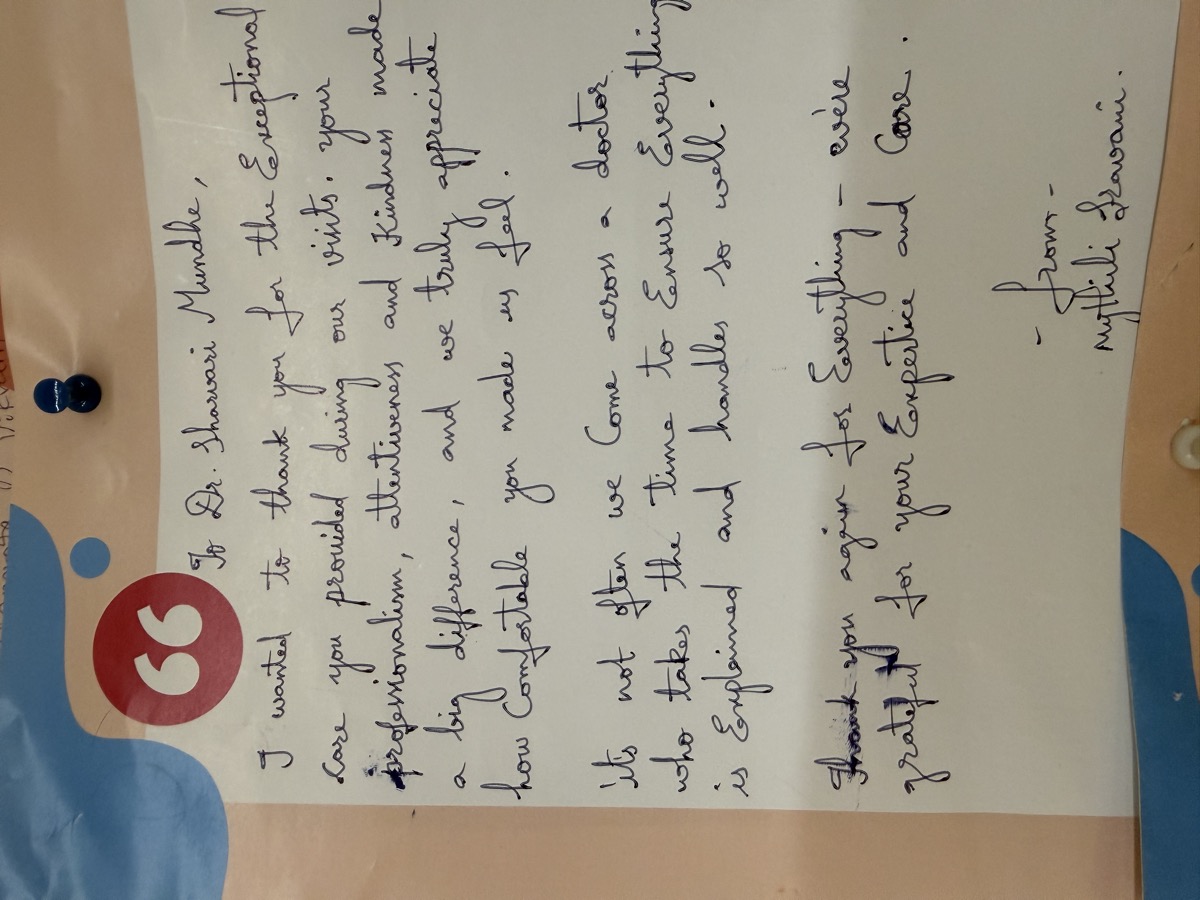 To Dr. Sharvari Mundhe,
I wanted to thank you for the Exceptional
Care you provided during our visits. your
professionalism, attentiveness and Kindness made
a big difference, and we truly appreciate
how Comfortable you made us feel.
its not often we Come across a doctor
who takes the time to Ensure Everything
is Explained and handles so well.
Thank you again for Everything – we're
grateful for your Expertice and Care.
- from -